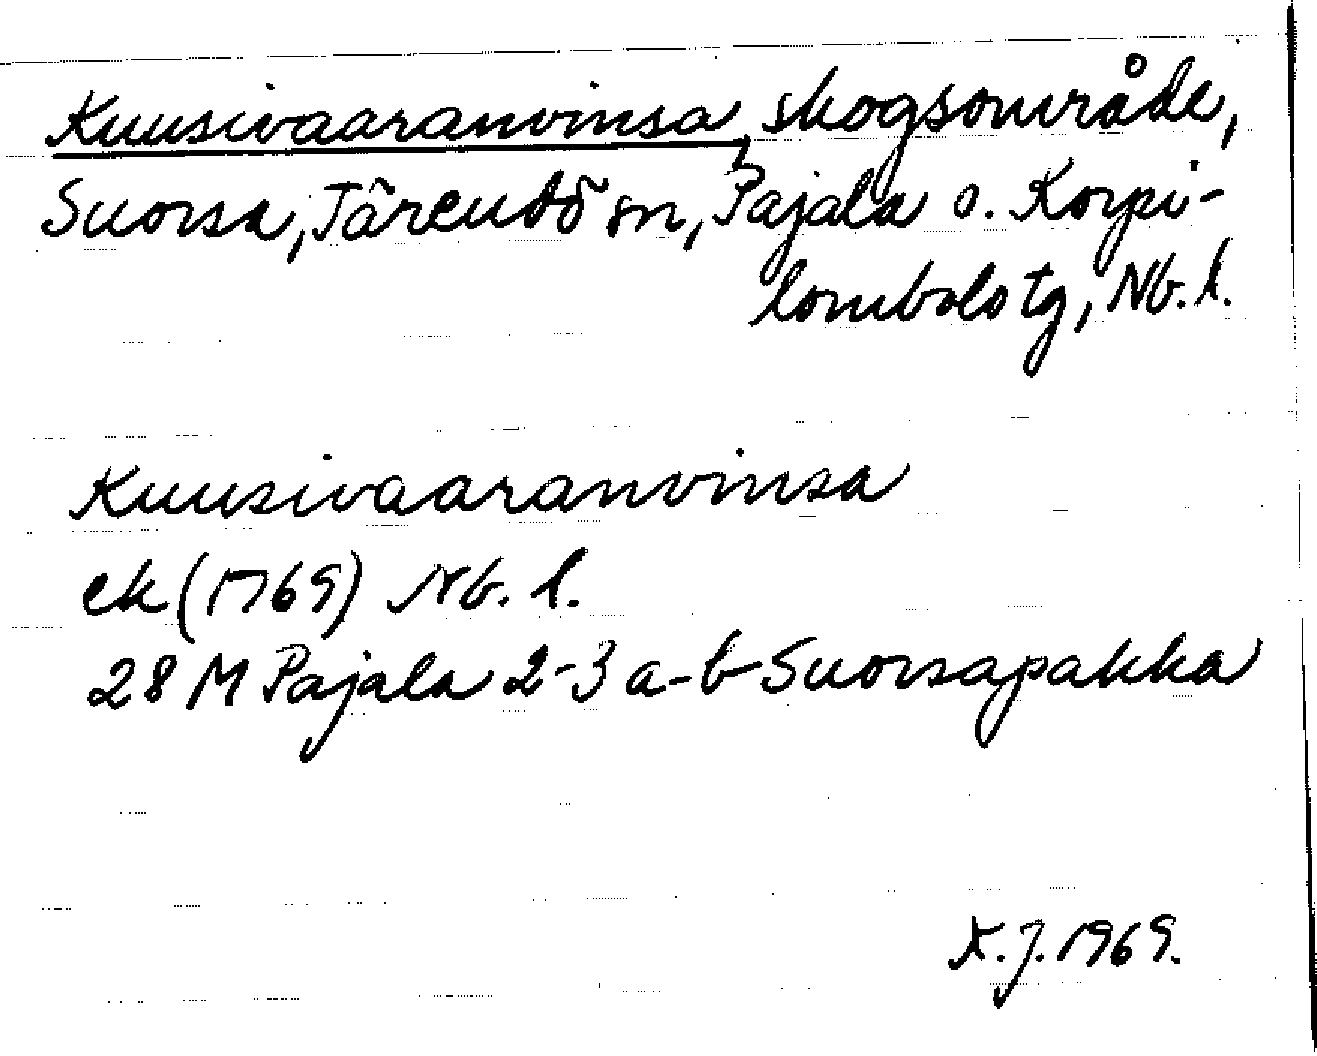 Kuusivaaranvinsa, skogsområde,
Suorsa, Tärendö sn, Pajala o. Korpi-
lombolo tg, Nb. l.
Kuusivaaranvinsa
ek (1769) Nb. l.
28 M Pajala 2-3 a-b Suorsapakka
K.J. 1969.